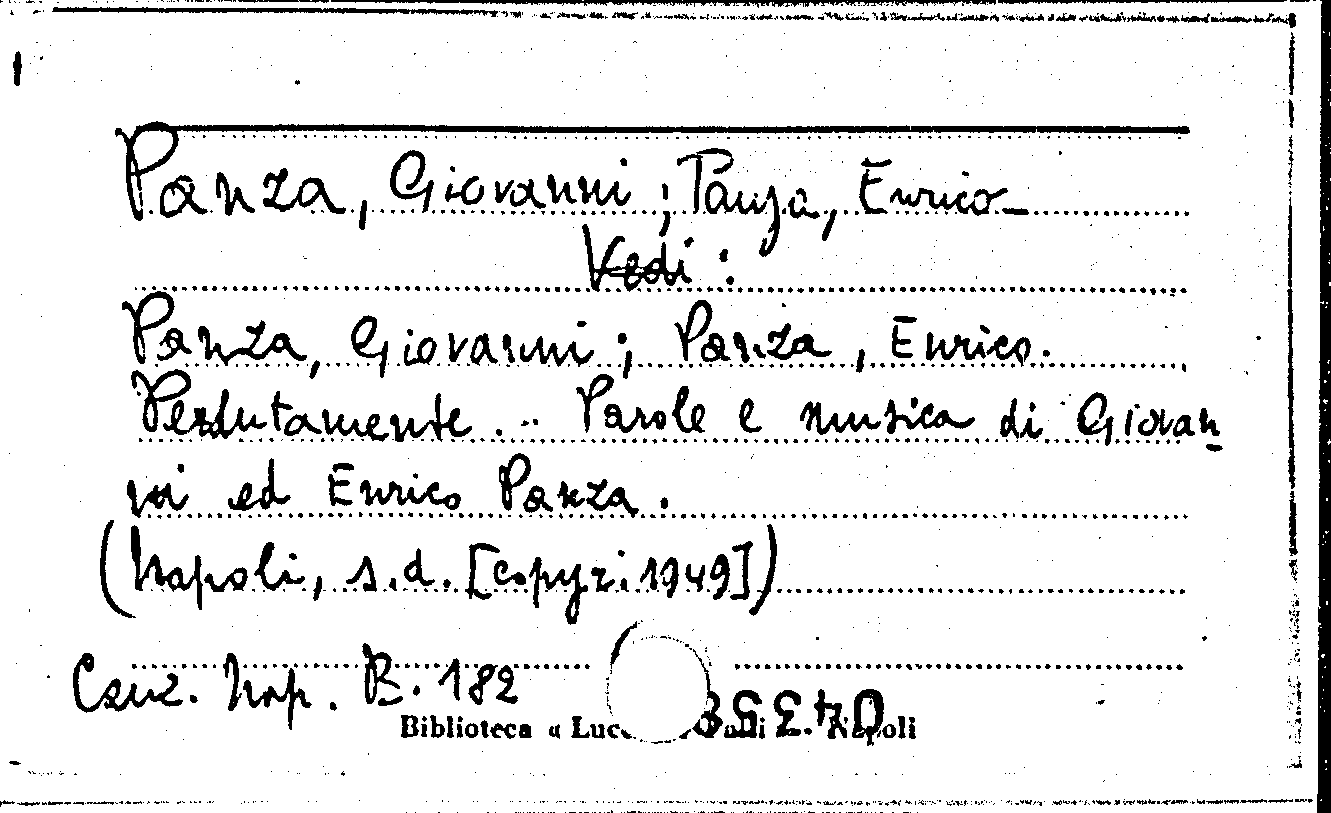 Panza, Giovanni ; Panza, Enrico-
Vedi :
Panza, Giovanni ; Panza, Enrico.
Perdutamente ... Parole e musica di Giovan-
ni ed Enrico Panza.
(Napoli, s.d. [copyr. 1949])
Canz. Nap. B. 182
Biblioteca « Lucc Napoli